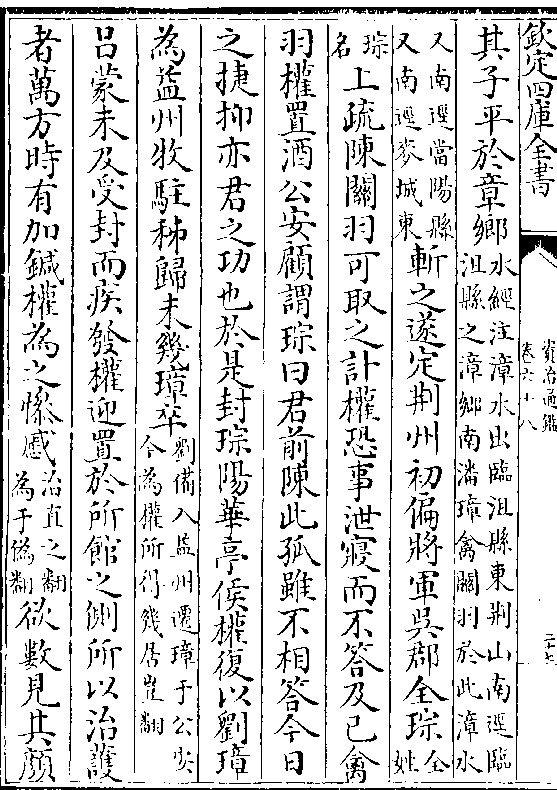 欽定四庫全書
資治通鑑
卷六十八
二十七
其子平於章鄉水經注漳水出臨沮縣東荆山南逕臨沮縣之漳鄉南潘璋禽關羽於此漳水
又南逕當陽縣又南逕麥城東斬之遂定荆州初偏將軍吳郡全琮全姓
琮名上疏陳關羽可取之計權恐事泄寢而不答及已禽
羽權置酒公安顧謂琮曰君前陳此孤雖不相答今日
之捷抑亦君之功也於是封琮陽華亭侯權復以劉璋
為益州牧駐秭歸未幾璋卒劉備入益州遷璋于公安今為權所得幾居豈翻
呂蒙未及受封而疾發權迎置於所館之側所以治護
者萬方時有加鍼權為之慘慼治直之翻為于偽翻欲數見其顏